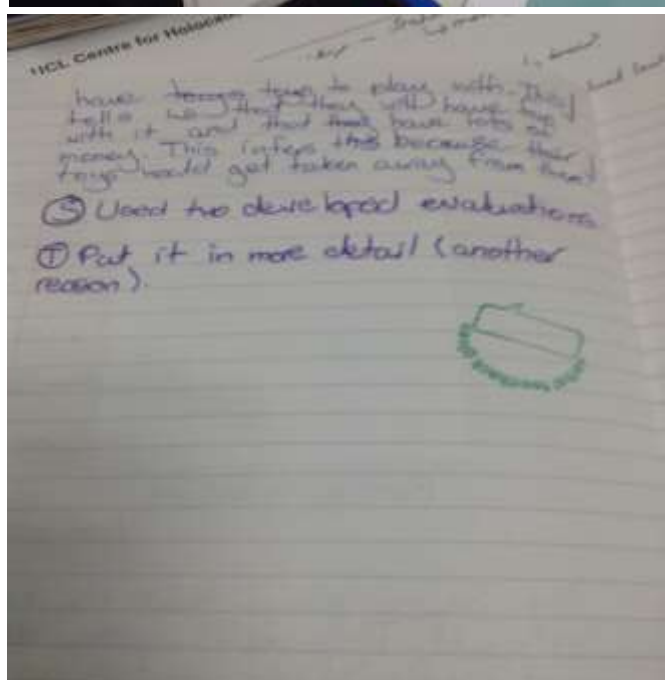 UCL Centre for Holocaust
have toys to play with. This
tells us that they will have fun
with it and that have lots of
money. This infers this because their
toys would get taken away from them
(S) Used two developed evaluations
(T) Put it in more detail (another
reason).